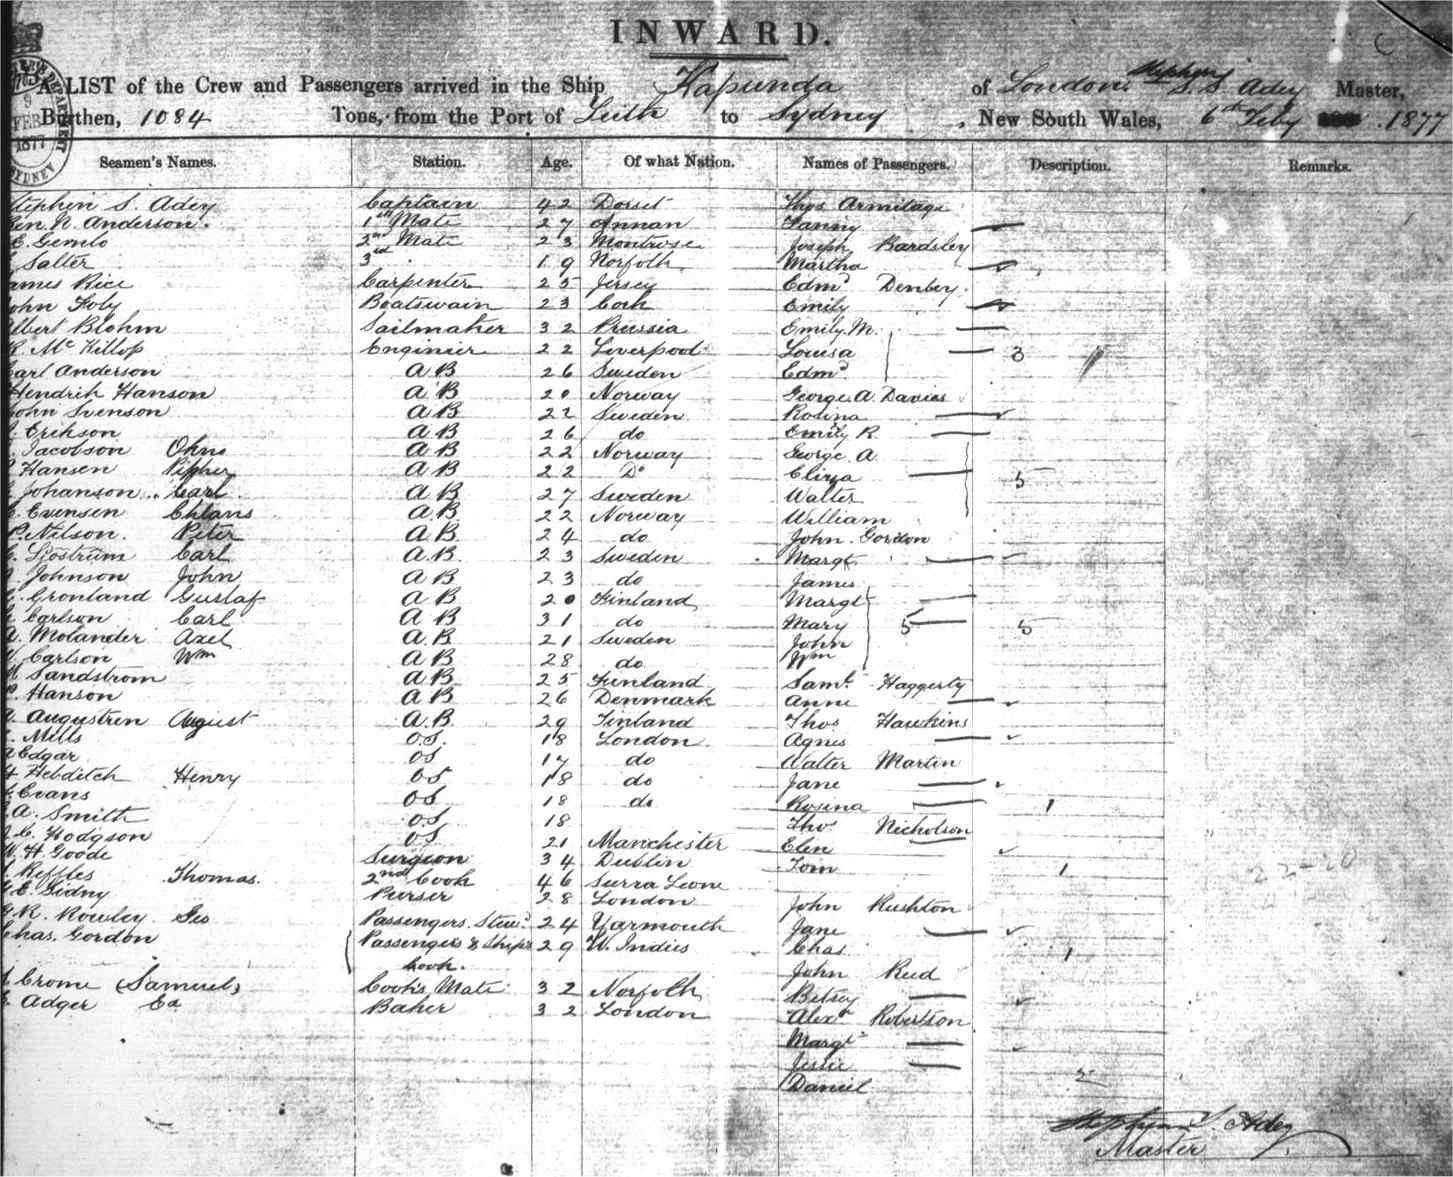 INWARD.
A LIST of the Crew and Passengers arrived in the Ship Kapunda of London, Stephen S. S. Adey Master,
Burthen, 1084 Tons, from the Port of Leith to Sydney, New South Wales, 6th Feby 1877
9
FEB
1877
SYDNEY
Seamen's Names. Station. Age. Of what Nation. Names of Passengers. Description. Remarks.
Stephen S. Adey Captain 42 Dorset Thos Armitage
N. Anderson. 1st Mate 27 Annan Fanny
2nd Mate 23 Montrose Joseph Bardsley
Salter 3rd 19 Norfolk Martha
James Rice Carpenter 25 Jersey Edmd Denbey
John Foby Boatswain 23 Cork Emily
Albert Blohm Sailmaker 32 Prussia Emily M.
McKillop Engineer 22 Liverpool Louisa 3
Carl Anderson AB 26 Sweden Edmd
Hendrik Hanson AB 20 Norway George A. Davies
John Svenson AB 22 Sweden Rosina
Erikson AB 26 do Emily R.
Jacobson AB 22 Norway George A.
Hansen AB 22 Do Eliza 5
Johanson Carl AB 27 Sweden Walter
Evensen AB 22 Norway William
P. Nilson. Peter AB 24 do John Gordon
Carl A.B. 23 Sweden Margt
Johnson John AB 23 do James
Gronland Gustaf AB 20 Finland Margt
Carlson Carl AB 31 do Mary 5 5
A. Molander Axel A.B. 21 Sweden John
Carlson Wm AB 28 do Wm
Sandstrom AB 25 Finland Saml Haggerty
Hanson AB 26 Denmark Anne
August A.B. 29 Finland Thos Hawkins
Mills O.S. 18 London Agnes
Edgar OS 17 do Walter Martin
Hebditch Henry OS 18 do Jane
Evans OS 18 do Rosina 1
A. Smith O.S. 18 Thos Nicholson
C. Hodgson OS 21 Manchester Elen
W. H. Goode Surgeon 34 Dublin Tom 1
Reffles Thomas. 2nd Cook 46 Sierra Leone
22-20
E. Gidny Purser 28 London John Rushton
R. Rowley Geo Passengers Stewd 24 Yarmouth Jane
Chas. Gordon Passengers & Ships 29 W. Indies Chas 1
Cook. John Reid
Crome (Samuel) Cook's Mate 32 Norfolk Betsey
Adger Ed Baker 32 London Alexr Robertson
Margt
Jessie
Daniel 2
Stephen S. Adey
Master